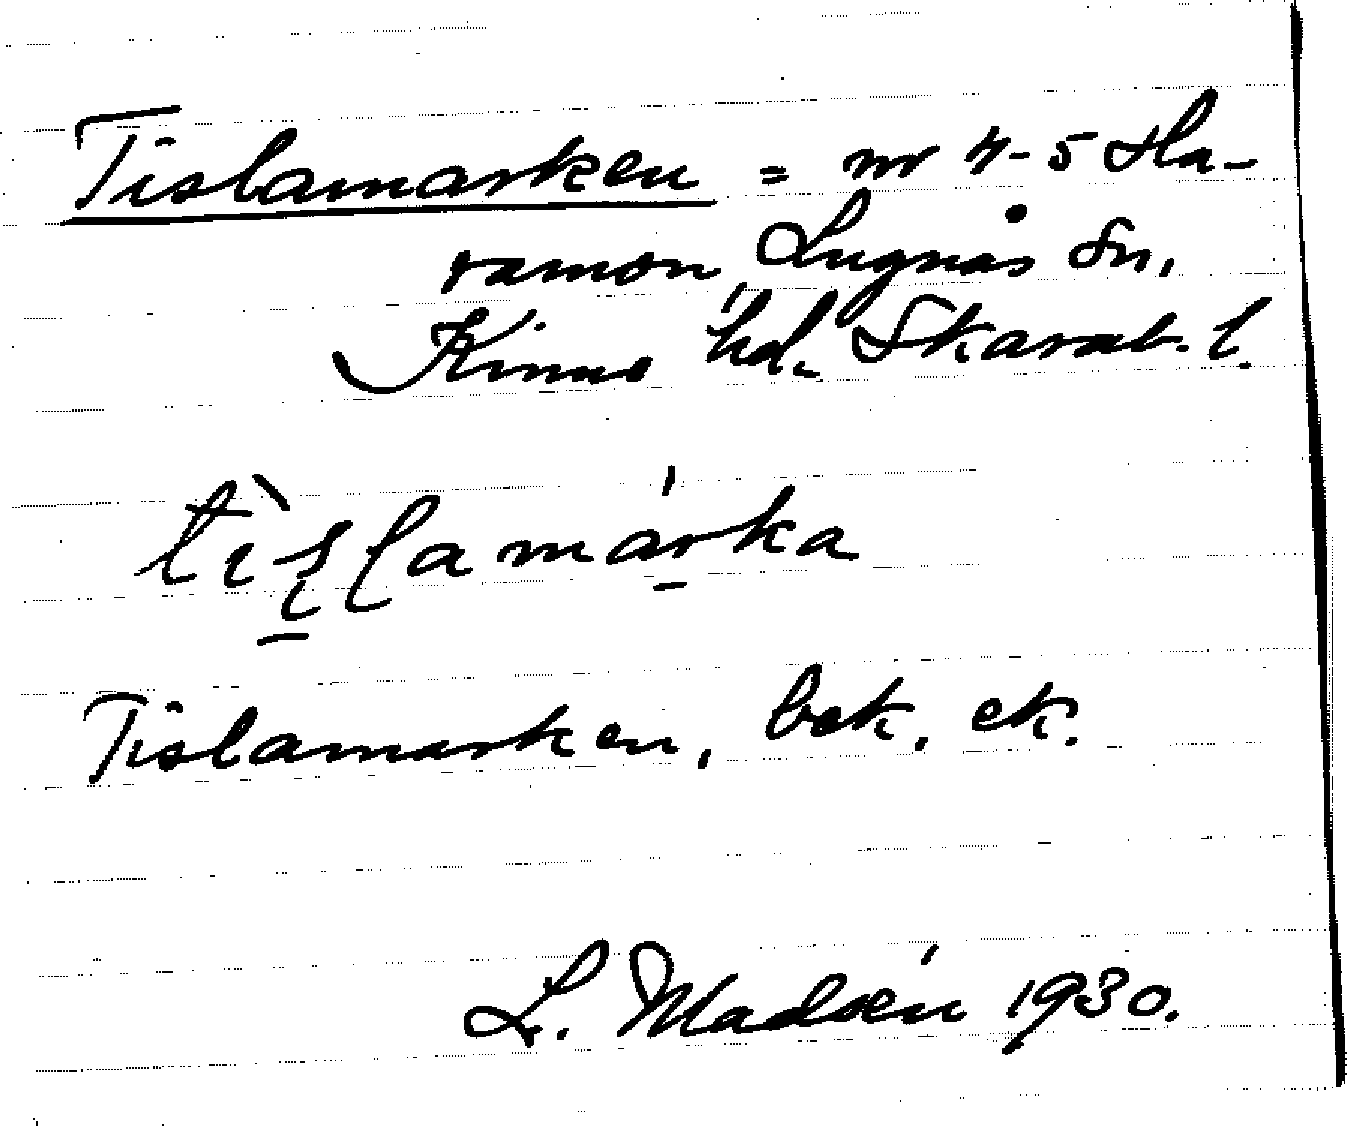 Tislamarken = nr 4-5 Ha-
ramon Lugnås Sn,
Kinne hd. Skarab. l.
tìʂlamárka
Tislamarken, bek. ek.
L. Madsén 1930.